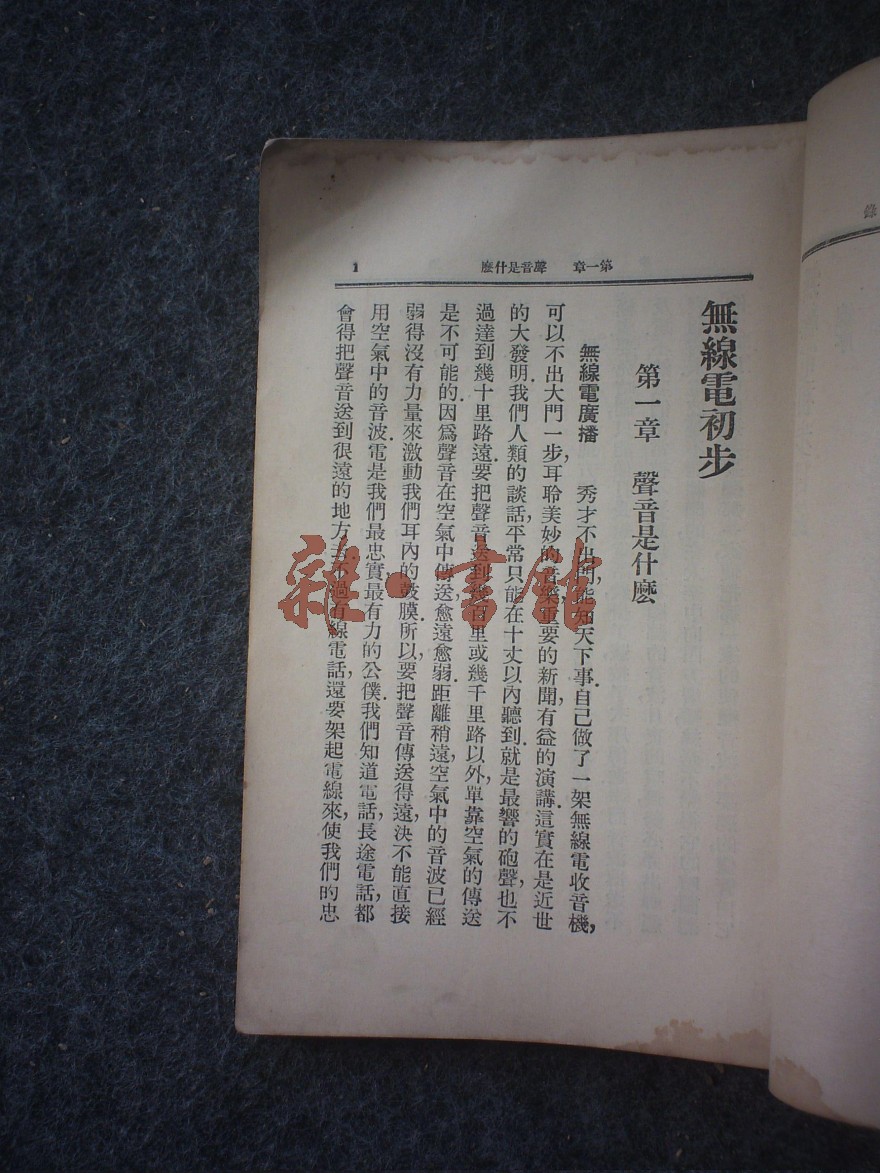 第一章　聲音是什麽
1
無線電初步
第一章　聲音是什麽
無線電廣播　秀才不出門,能知天下事.自己做了一架無線電收音機,
可以不出大門一步,耳聆美妙的音樂,重要的新聞,有益的演講.這實在是近世
的大發明.我們人類的談話,平常只能在十丈以內聽到.就是最響的砲聲,也不
過達到幾十里路遠.要把聲音送到幾百里或幾千里路以外,單靠空氣的傳送
是不可能的.因爲聲音在空氣中傳送,愈遠愈弱.距離稍遠,空氣中的音波已經
弱得沒有力量來激動我們耳內的鼓膜.所以要把聲音傳送得遠,決不能直接
用空氣中的音波.電是我們最忠實最有力的公僕.我們知道電話,長途電話,都
會得把聲音送到很遠的地方去.不過有線電話,還要架起電線來,使我們的忠
雜·書館
錄